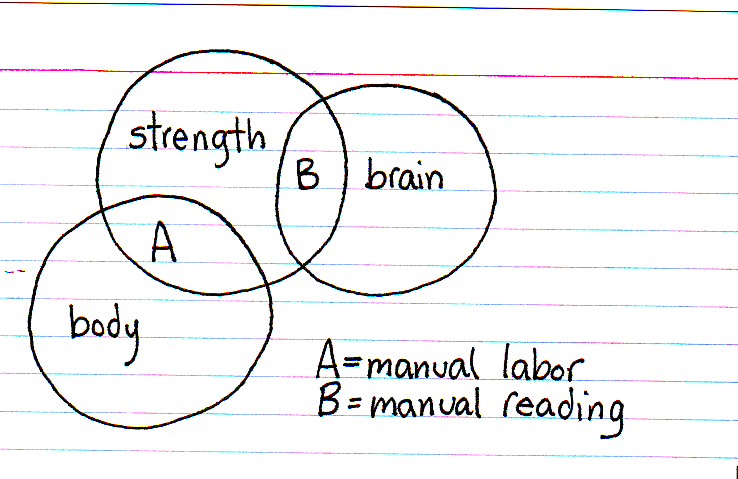 strength
B
brain
A
body
A=manual labor
B=manual reading